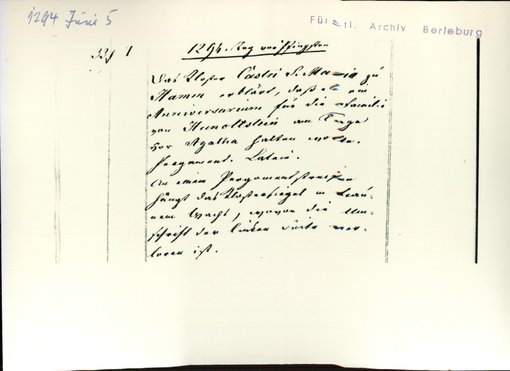 1294 Juni 5
Fürstl. Archiv Berleburg
1 1294. Tag vor Pfingsten
Das Kloster Castri S. Maria zu
Hamm erklärt, daß es ein
Anniversarium für die Familie
von Hunoltstein am Tage
vor Agatha halten werde.
Pergament. Latein.
An einem Pergamentstreifen
hängt das Klostersiegel in brau-
nem Wachs, wovon die Um-
schrift der linken Seite ver-
loren ist.